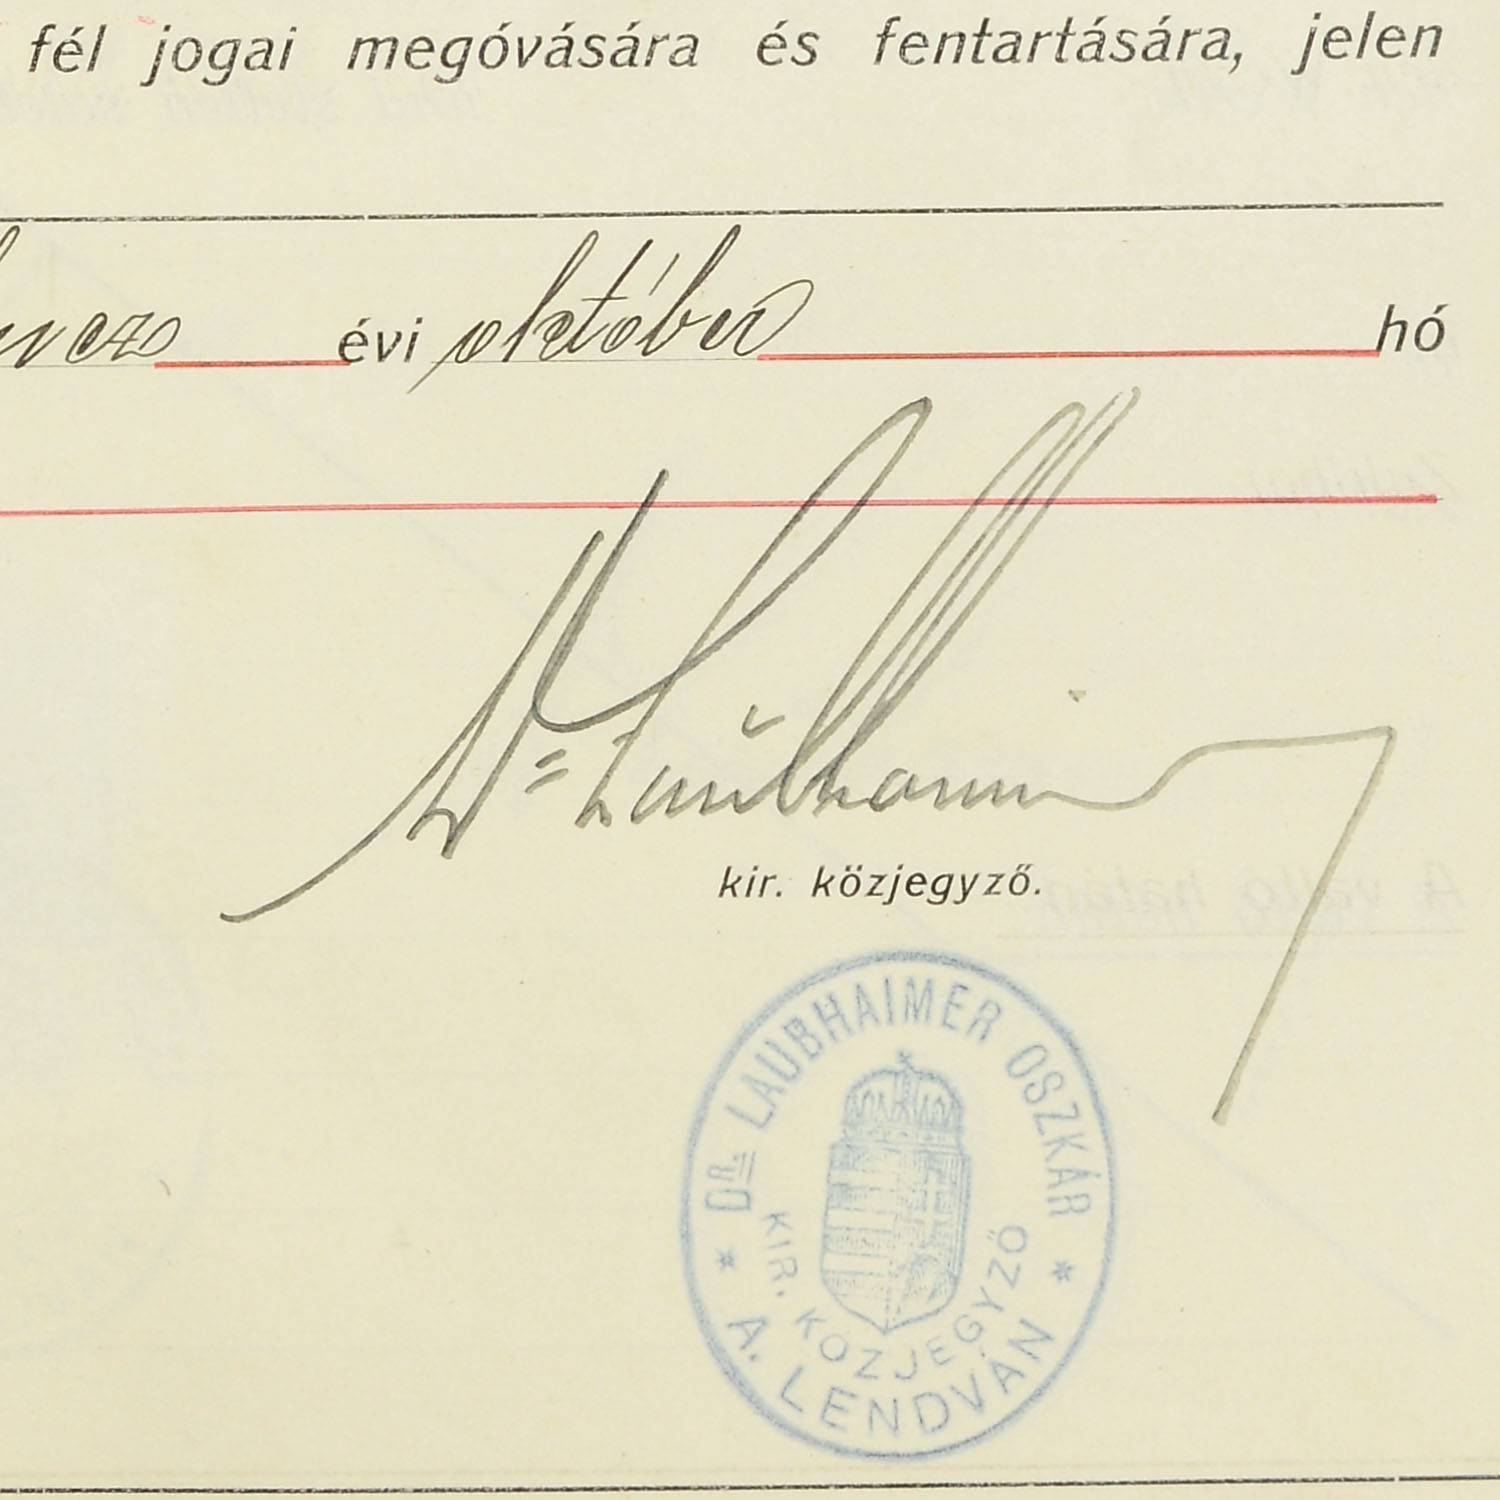 fél jogai megóvására és fentartására, jelen
évi október hó
Dr. Laubhaimer
kir. közjegyző.
DR. LAUBHAIMER OSZKÁR
KIR. KÖZJEGYZŐ
* A. LENDVÁN *